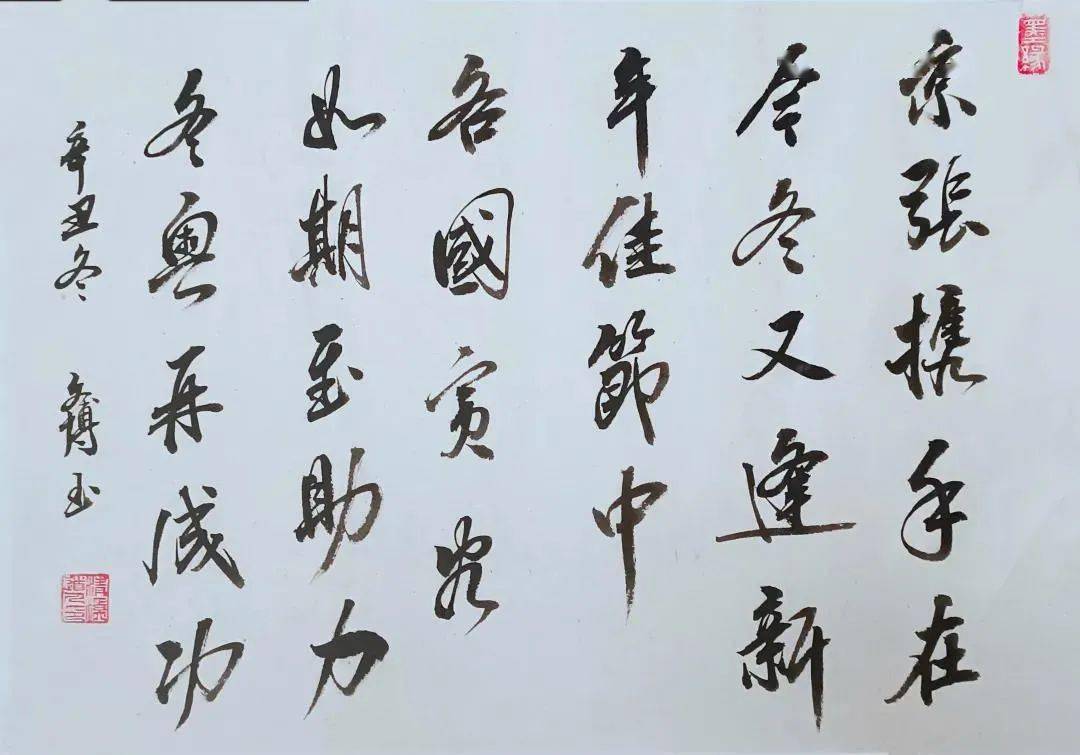 京張携手在
今冬又逢新
年佳節中
各國賓客
如期至助力
冬奥再成功
辛丑冬
玉
墨缘